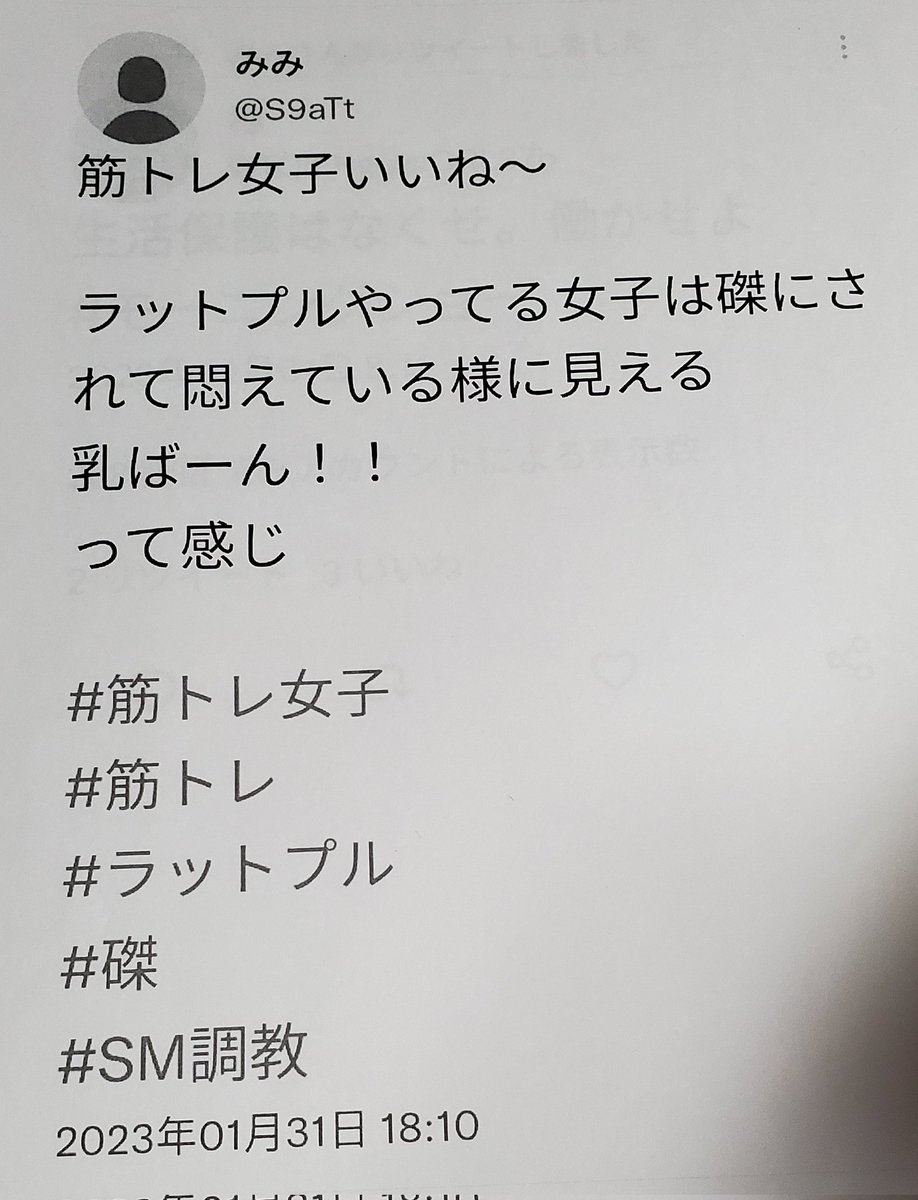 みみ
@S9aTt
筋トレ女子いいね～
ラットプルやってる女子は磔にさ
れて悶えている様に見える
乳ばーん！！
って感じ
#筋トレ女子
#筋トレ
#ラットプル
#磔
#SM調教
2023年01月31日 18:10